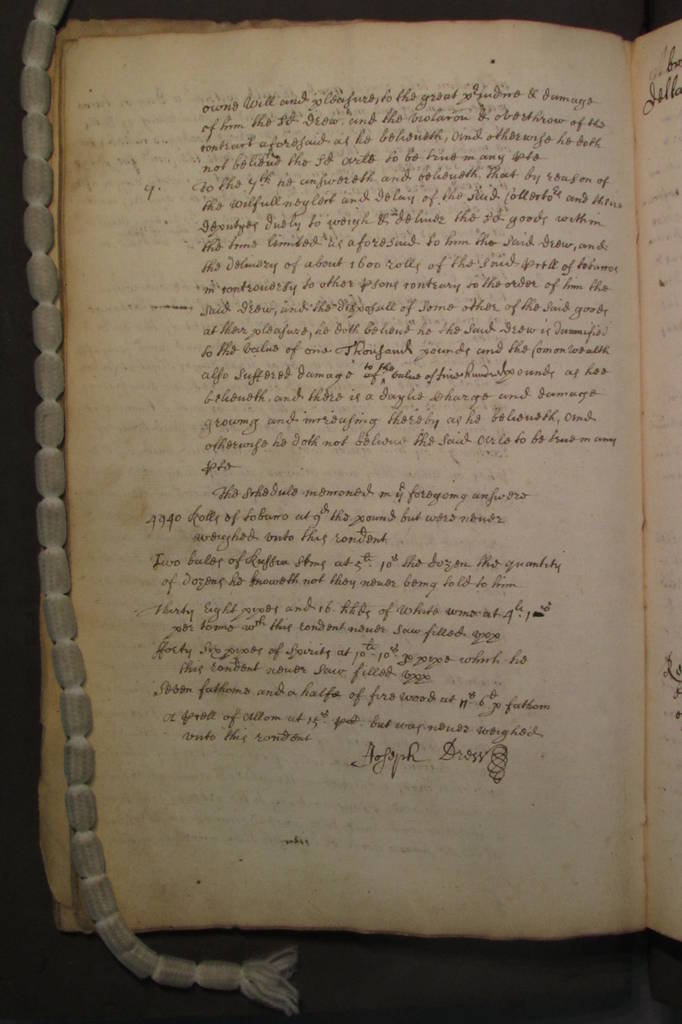 owne will and pleasure, to the great p^rjudice & damage
of him the s^d Drew, and the violacon & overthrow of the
contract aforesaid as he beleiveth, And otherwise he doth
not beleive the s^d arle to be true in any pte
9. To the 9^th he answereth and beleiveth, That by reason of
the wilfull neglect and delay of the said Collecto^rs and their
deputyes duely to weigh & deliver the s^d goods within
the time limited as aforesaid to him the said Drew, and
the delivery of about 1600 rolls of the said prell of tobaccoe
in controversy to other psons contrary to the order of him the
said Drew, and the disposall of some other of the said goods
at their pleasure, he doth beleive he the said Drew is damnified
to the value of one Thousand pounds and the Comonwealth
also suffered damage to the value of five hundred pounds as hee
beleiveth, and there is a daylie charge and damage
growing and increasing thereby as he beleiveth, And
otherwise he doth not beleive the said Arle to be true in any
pte
The schedule mencioned in y^e foregoing answere
4940 Rolls of tobacco at 9^d the pound but were never
weighed unto this rondent
Two bales of Russia at 5^li 10^s the dozen the quantity
of dozens he knoweth not they never being told to him
Thirty Eight pipes and 16 hhds of White wine at 4^li
per tonne w^ch this rondent never saw filled upp
fforty six pipes of Spirits at 10^li 10^s p pipe which he
this rondent never saw filled upp
Seven fathome and a halfe of fire wood at 11^s 6^d p fathom
A prell of Allom at 15^s but was never weighed
unto this rondent
Joseph Drew